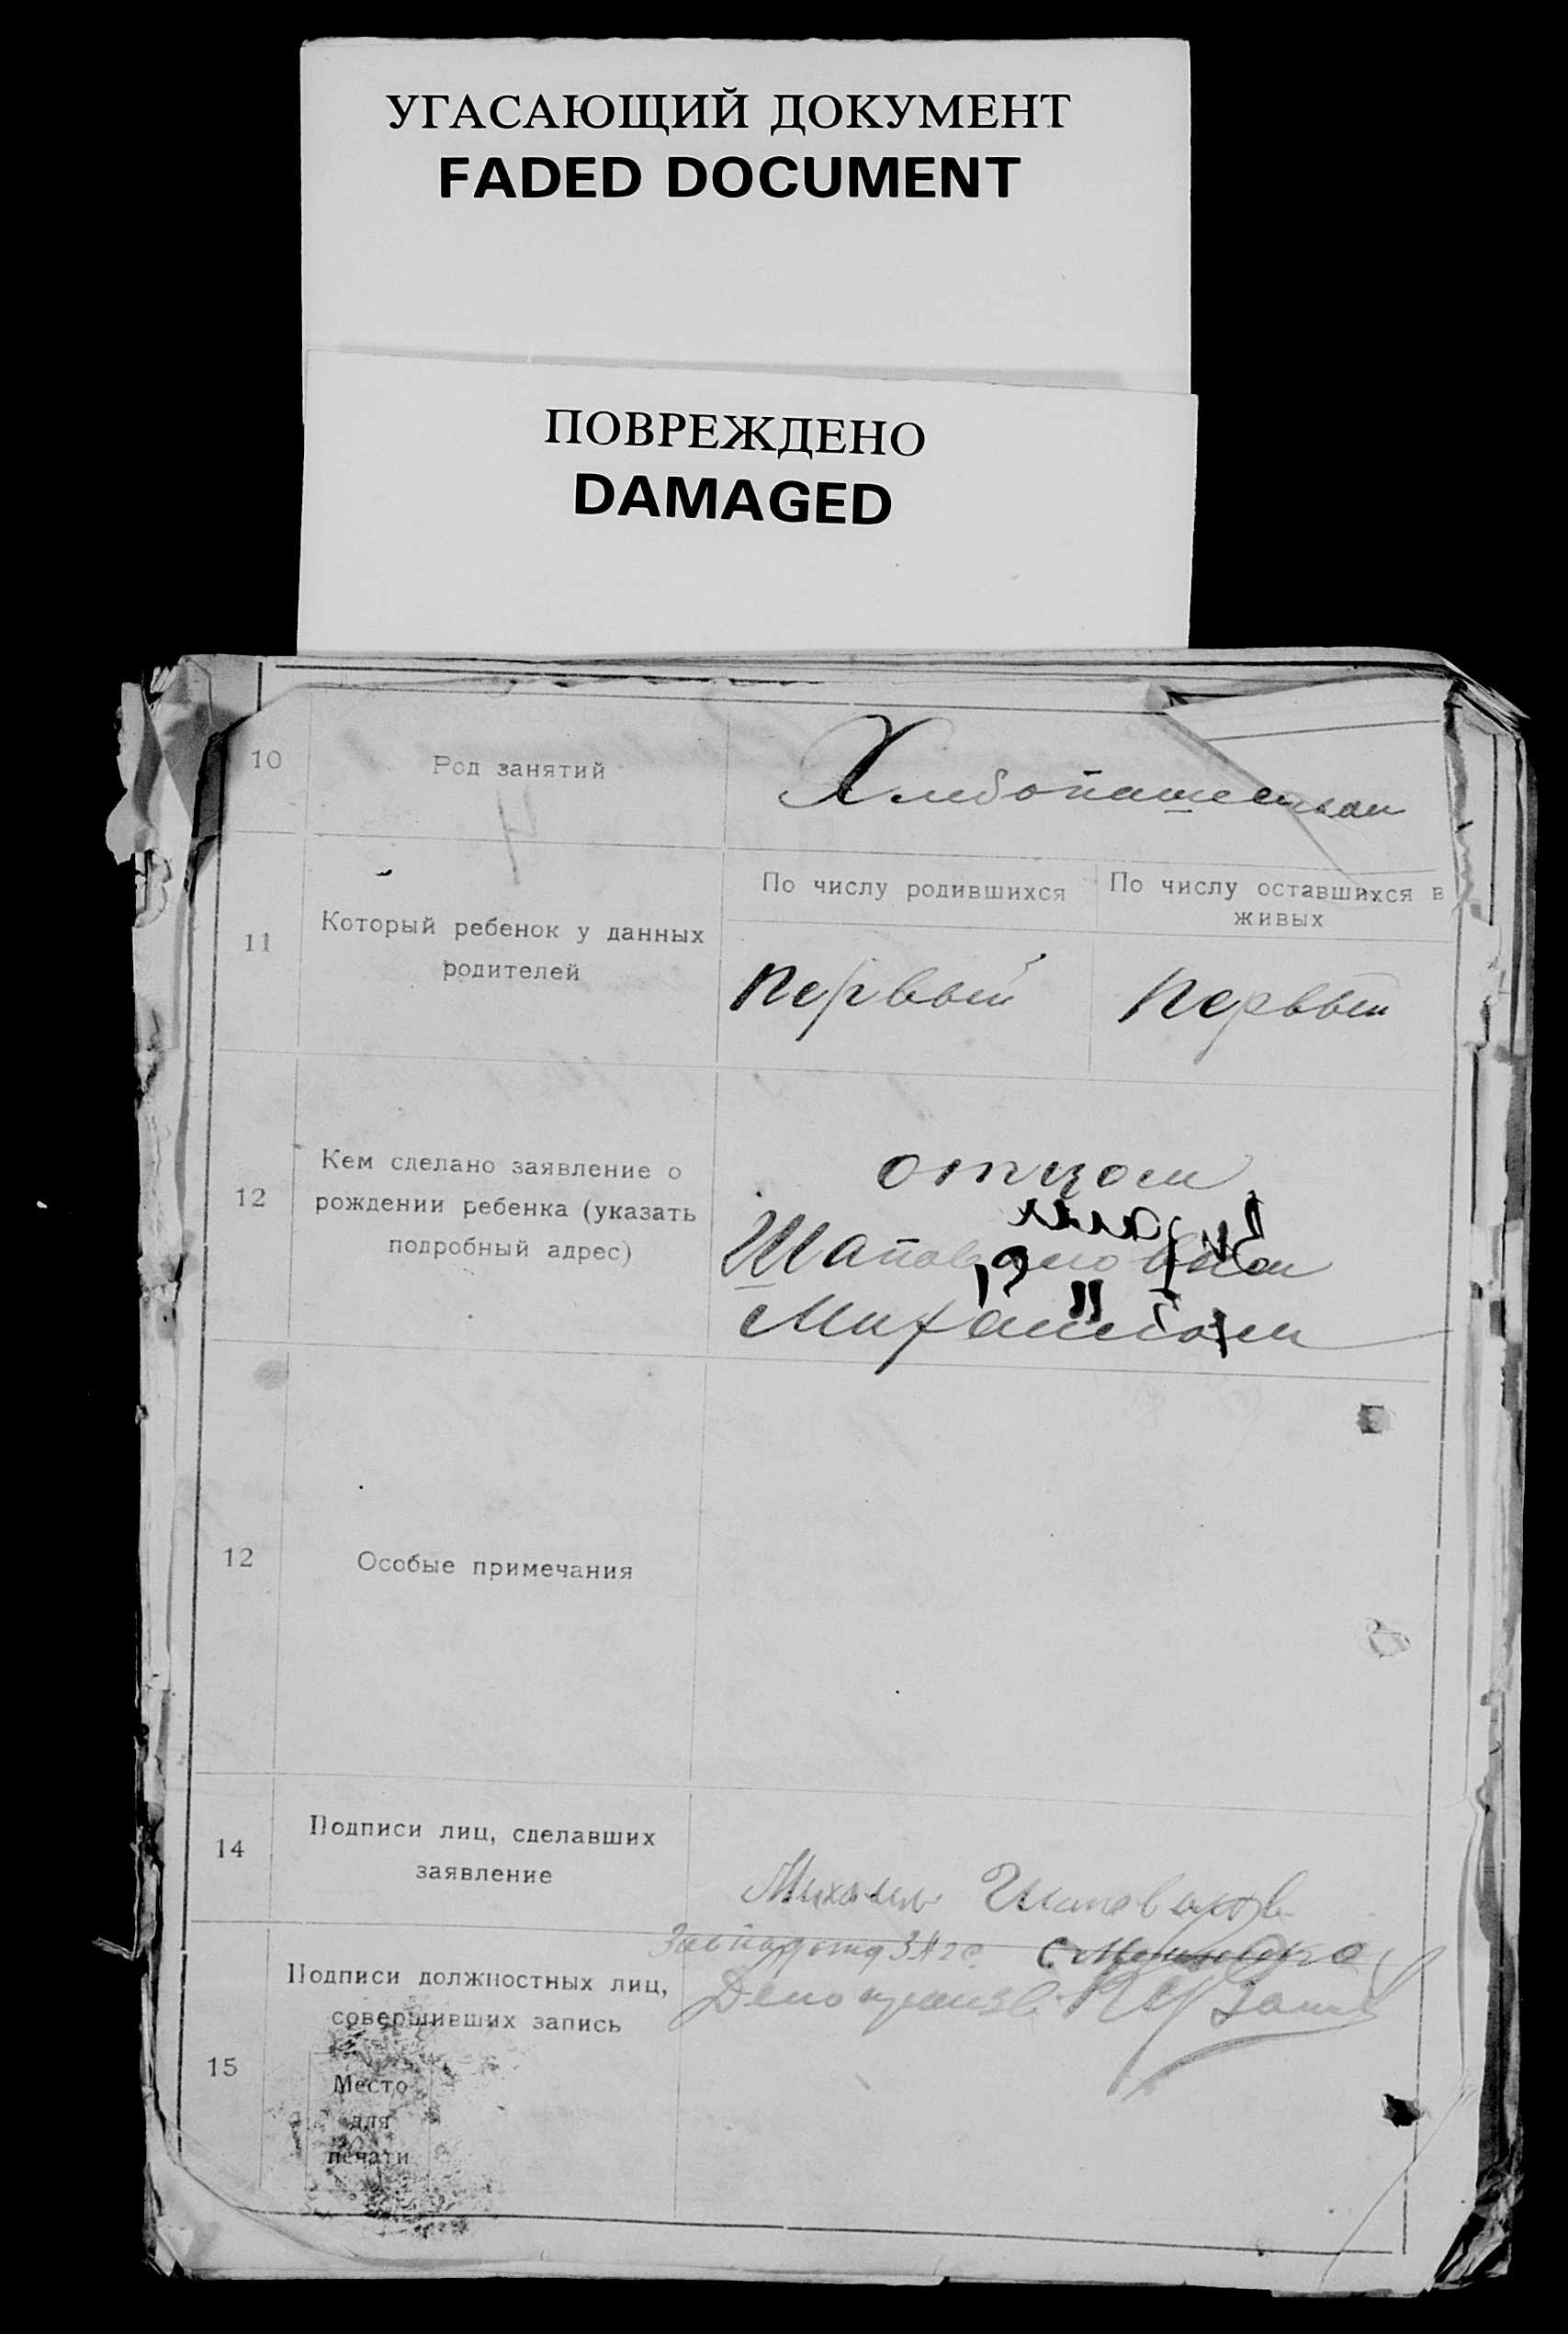 УГАСАЮЩИЙ ДОКУМЕНТ
FADED DOCUMENT
ПОВРЕЖДЕНО
DAMAGED
10 Род занятий
11 Который ребенок у данных
родителей
По числу родившихся
По числу оставшихся в
живых
первый первый
12 Кем сделано заявление о
рождении ребенка (указать
подробный адрес)
отцом
Шаповаловым
Михаилом
12 Особые примечания
14 Подписи лиц, сделавших
заявление
Михаил Шаповалов
15 Подписи должностных лиц,
совершивших запись
Место
для
печати